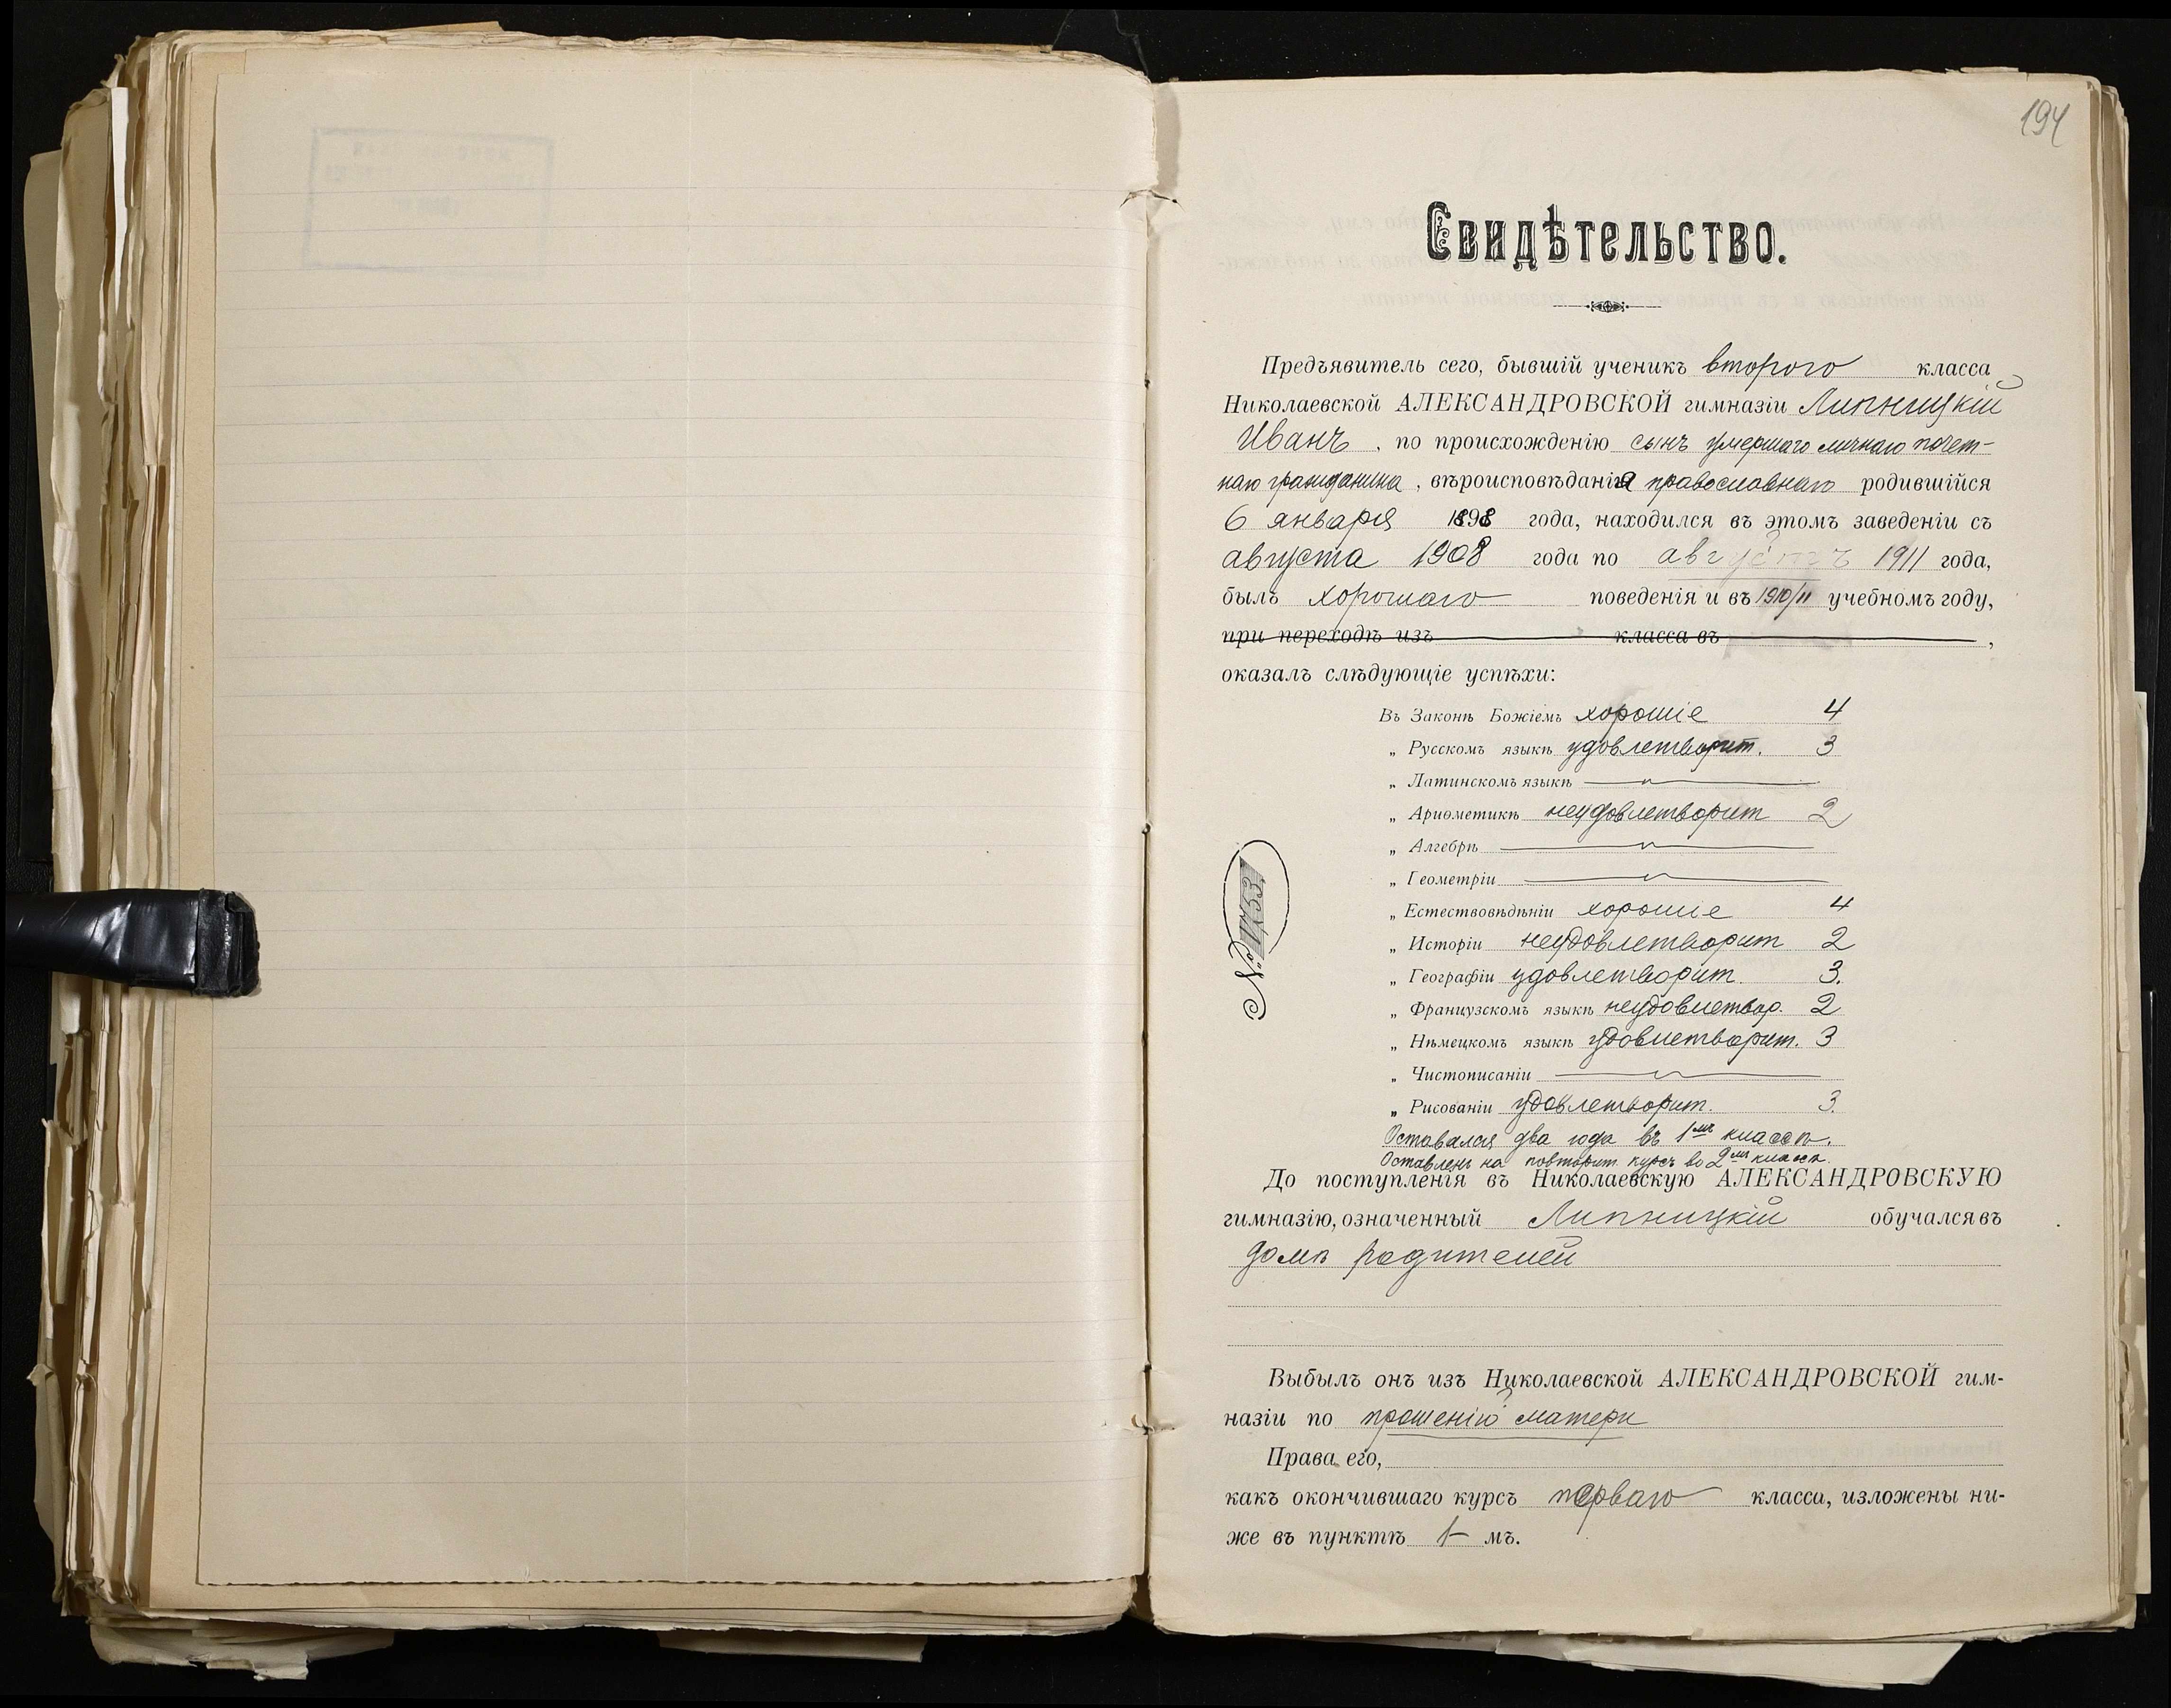 194
Свидѣтельство.
Предъявитель сего, бывшій ученикъ второго класса
Николаевской АЛЕКСАНДРОВСКОЙ гимназіи Липницкій
Иванъ, по происхожденію сынъ умершаго личнаго почет-
наго гражданина, вѣроисповѣданія православнаго родившійся
6 января 1898 года, находился въ этомъ заведеніи съ
августа 1908 года по августъ 1911 года,
былъ хорошаго поведенія и въ 1910/11 учебномъ году,
при переходѣ изъ класса въ ,
оказалъ слѣдующіе успѣхи:
Въ Законѣ Божіемъ хорошіе 4
„ Русскомъ языкѣ удовлетворит. 3
„ Латинскомъ языкѣ
„ Ариѳметикѣ неудовлетворит 2
„ Алгебрѣ
„ Геометріи
„ Естествовѣдѣніи хорошіе 4
„ Исторіи неудовлетворит 2
„ Географіи удовлетворит. 3.
„ Французскомъ языкѣ неудовлетвор. 2
„ Нѣмецкомъ языкѣ удовлетворит. 3
„ Чистописаніи
„ Рисованіи удовлетворит. 3.
Оставался два года въ 1мъ классѣ.
Оставленъ на повторит. курсъ во 2мъ классѣ.
№ 1753
До поступленія въ Николаевскую АЛЕКСАНДРОВСКУЮ
гимназію, означенный Липницкій обучался въ
домѣ родителей
Выбылъ онъ изъ Николаевской АЛЕКСАНДРОВСКОЙ гим-
назіи по прошенію матери
Права его,
какъ окончившаго курсъ перваго класса, изложены ни-
же въ пунктѣ 1-мъ.